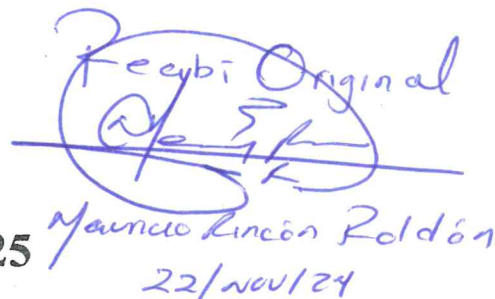 Recibí Original
Mauricio Rincón Roldón
25
22/NOV/24